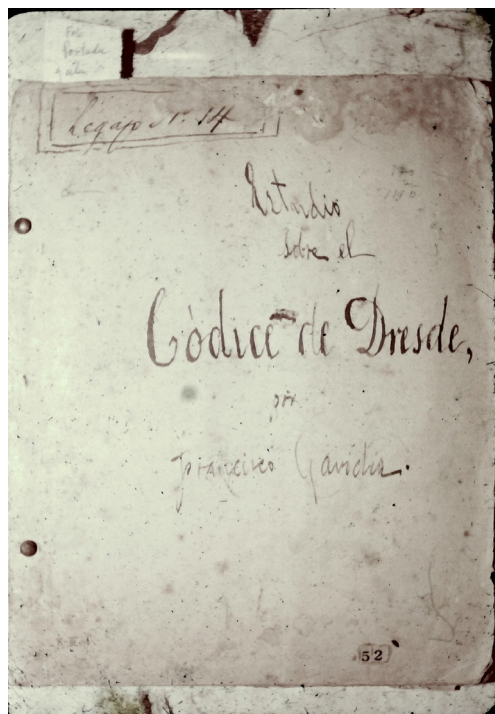 Legajo Nº. 14
Estudio
sobre el
Códice de Dresde,
por
Francisco Gavidia.
52